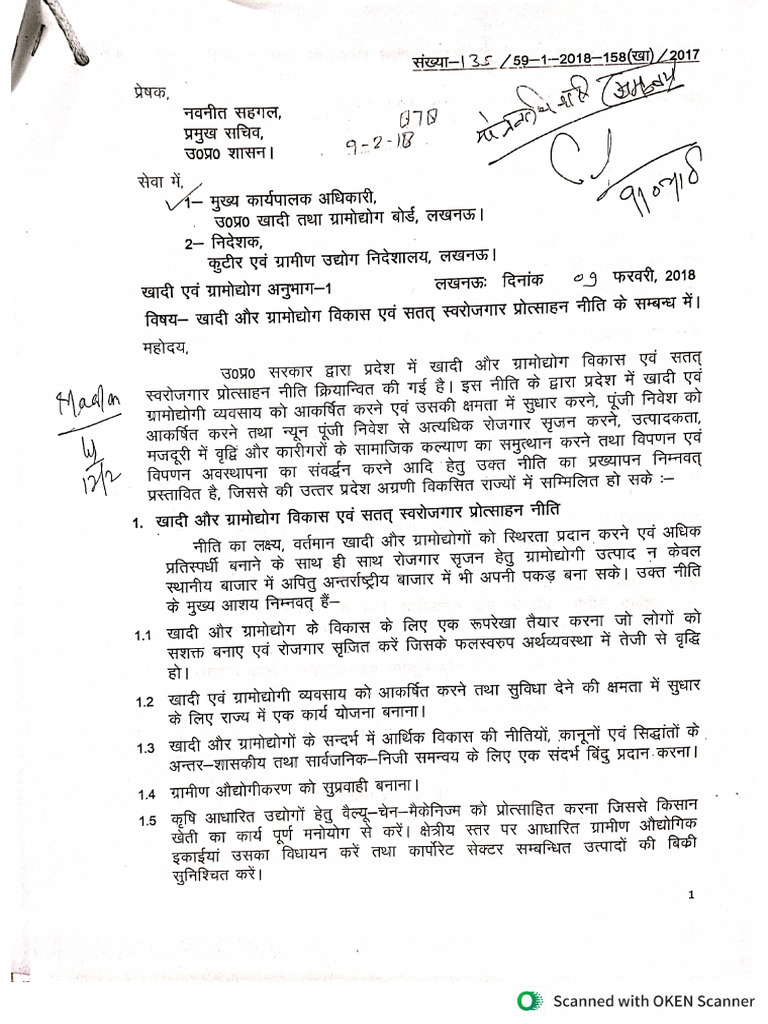 संख्या-135/59-1-2018-158(खा)/2017
प्रेषक,
नवनीत सहगल,
प्रमुख सचिव,
उ0प्र0 शासन।
9-2-18
सेवा में,
1- मुख्य कार्यपालक अधिकारी,
उ0प्र0 खादी तथा ग्रामोद्योग बोर्ड, लखनऊ।
2- निदेशक,
कुटीर एवं ग्रामीण उद्योग निदेशालय, लखनऊ।
खादी एवं ग्रामोद्योग अनुभाग-1 लखनऊः दिनांक 09 फरवरी, 2018
विषय- खादी और ग्रामोद्योग विकास एवं सतत् स्वरोजगार प्रोत्साहन नीति के सम्बन्ध में।
महोदय,
उ0प्र0 सरकार द्वारा प्रदेश में खादी और ग्रामोद्योग विकास एवं सतत्
स्वरोजगार प्रोत्साहन नीति क्रियान्वित की गई है। इस नीति के द्वारा प्रदेश में खादी एवं
ग्रामोद्योगी व्यवसाय को आकर्षित करने एवं उसकी क्षमता में सुधार करने, पूंजी निवेश को
आकर्षित करने तथा न्यून पूंजी निवेश से अत्यधिक रोजगार सृजन करने, उत्पादकता,
मजदूरी में वृद्वि और कारीगरों के सामाजिक कल्याण का समुत्थान करने तथा विपणन एवं
विपणन अवस्थापना का संवर्द्धन करने आदि हेतु उक्त नीति का प्रख्यापन निम्नवत्
प्रस्तावित है, जिससे की उत्तर प्रदेश अग्रणी विकसित राज्यों में सम्मिलित हो सके :-
12/2
1. खादी और ग्रामोद्योग विकास एवं सतत् स्वरोजगार प्रोत्साहन नीति
नीति का लक्ष्य, वर्तमान खादी और ग्रामोद्योगों को स्थिरता प्रदान करने एवं अधिक
प्रतिस्पर्धी बनाने के साथ ही साथ रोजगार सृजन हेतु ग्रामोद्योगी उत्पाद न केवल
स्थानीय बाजार में अपितु अन्तर्राष्ट्रीय बाजार में भी अपनी पकड़ बना सके। उक्त नीति
के मुख्य आशय निम्नवत् हैं-
1.1 खादी और ग्रामोद्योग के विकास के लिए एक रूपरेखा तैयार करना जो लोगों को
सशक्त बनाए एवं रोजगार सृजित करें जिसके फलस्वरुप अर्थव्यवस्था में तेजी से वृद्वि
हो।
1.2 खादी एवं ग्रामोद्योगी व्यवसाय को आकर्षित करने तथा सुविधा देने की क्षमता में सुधार
के लिए राज्य में एक कार्य योजना बनाना।
1.3 खादी और ग्रामोद्योगों के सन्दर्भ में आर्थिक विकास की नीतियों, कानूनों एवं सिद्वांतों के
अन्तर-शासकीय तथा सार्वजनिक-निजी समन्वय के लिए एक संदर्भ बिंदु प्रदान करना।
1.4 ग्रामीण औद्योगीकरण को सुप्रवाही बनाना।
1.5 कृषि आधारित उद्योगों हेतु वैल्यू-चेन-मैकेनिज्म को प्रोत्साहित करना जिससे किसान
खेती का कार्य पूर्ण मनोयोग से करें। क्षेत्रीय स्तर पर आधारित ग्रामीण औद्योगिक
इकाईयां उसका विधायन करें तथा कार्पोरेट सेक्टर सम्बन्धित उत्पादों की बिकी
सुनिश्चित करें।
1
Scanned with OKEN Scanner